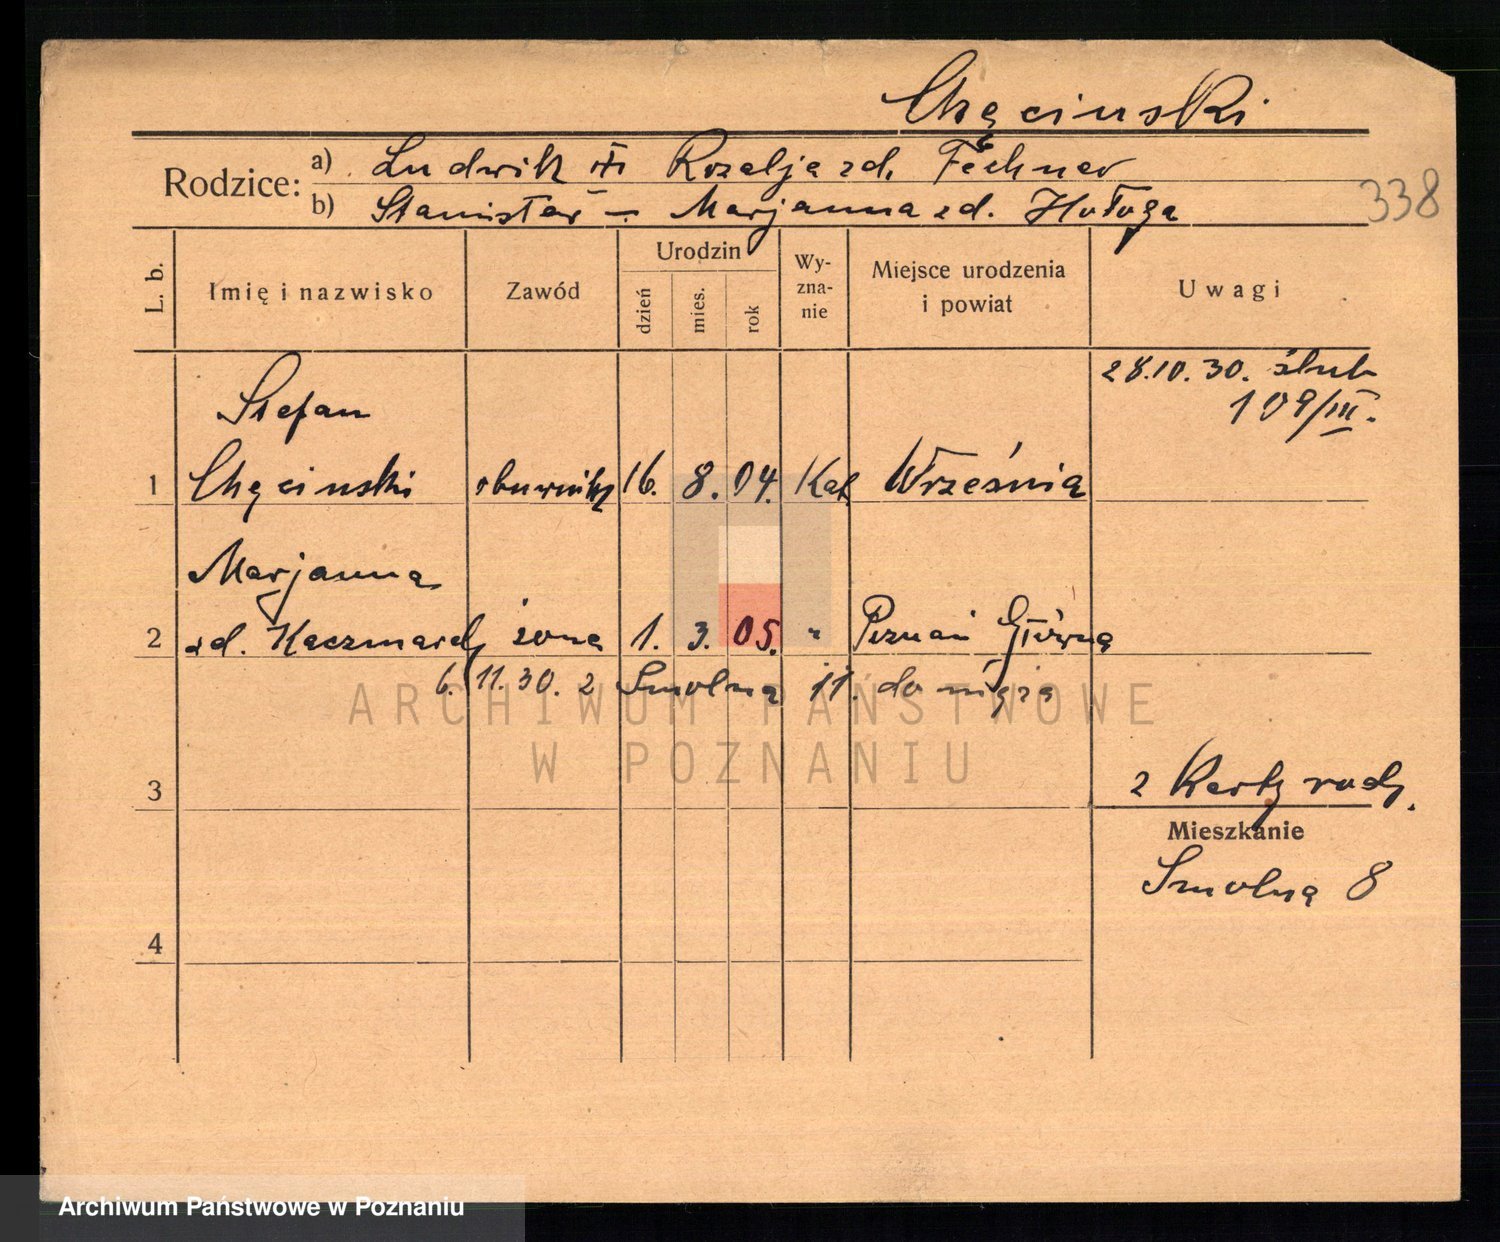 Chęcinski
Rodzice:
a) Ludwik i Rozalja zd. Fechner
b) Stanisław - Marjanna zd. Hołoga
338
L. b.
Imię i nazwisko
Zawód
Urodzin
dzień
mies.
rok
Wy-
zna-
nie
Miejsce urodzenia
i powiat
Uwagi
28.10.30. ślub
109/III.
Stefan
1 Chęcinski obuwnik 16. 8. 04. Kat Września
Marjanna
2 zd. Kaczmarek żona 1. 3. 05. " Poznań Główna
6. 11. 30. z Smolna 11. do męża
3
2 Karty rodz.
Mieszkanie
Smolna 8
4
ARCHIWUM PAŃSTWOWE
W POZNANIU
Archiwum Państwowe w Poznaniu